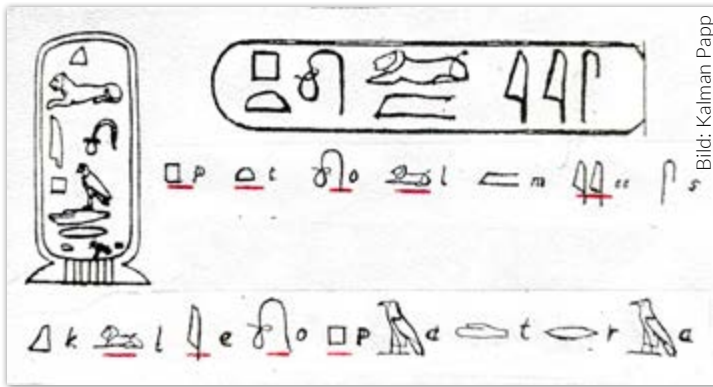 Bild: Kalman Papp
p t o l m ee s
k l e o p a t r a